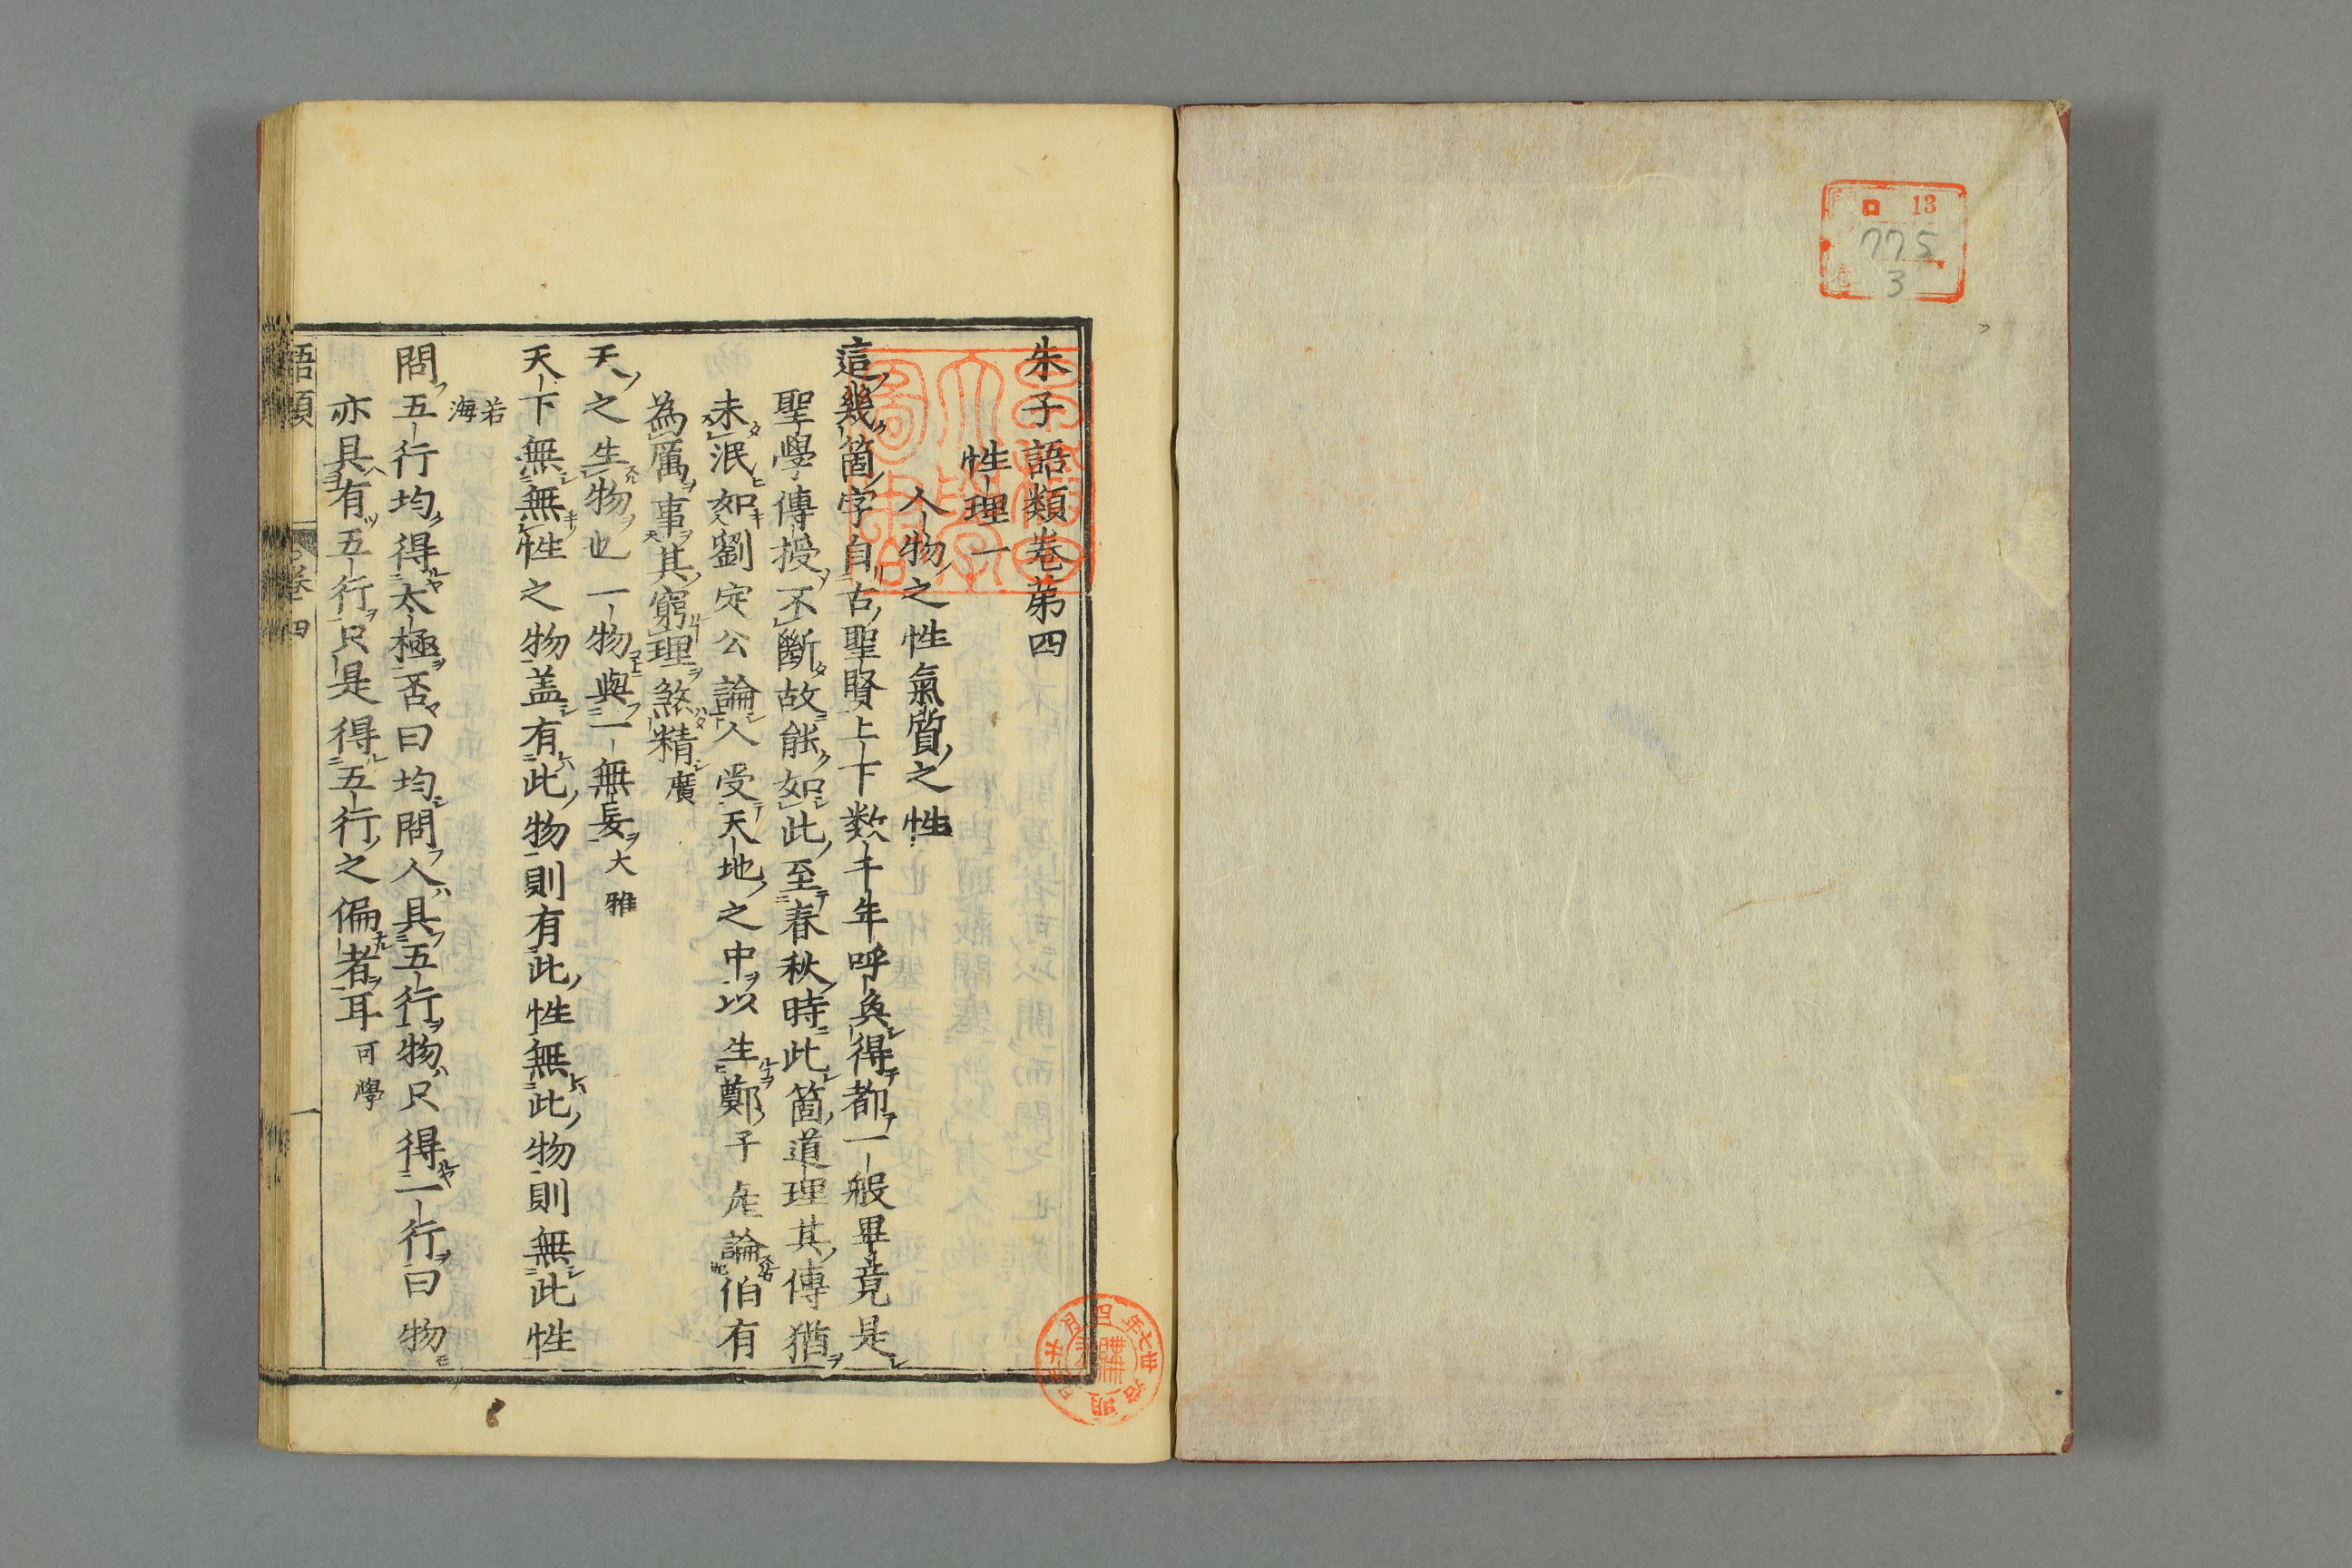 ロ 13
775
3
朱子語類卷第四
性理一
人物之性氣質之性
這幾箇字自古聖賢上下数千年呼喚得都一般畢竟是
聖學傳授不斷故能如此至春秋時此箇道理其傳猶
未泯如劉定公論人受天地之中以生鄭子産論伯有
為厲事其窮理煞精廣
天之生物也一物與一無妄大雅
天下無無性之物盖有此物則有此性無此物則無此性
若海
問五行均得太極否曰均問人具五行物只得一行曰物
亦具有五行只是得五行之偏者耳可學
語類
卷四
一